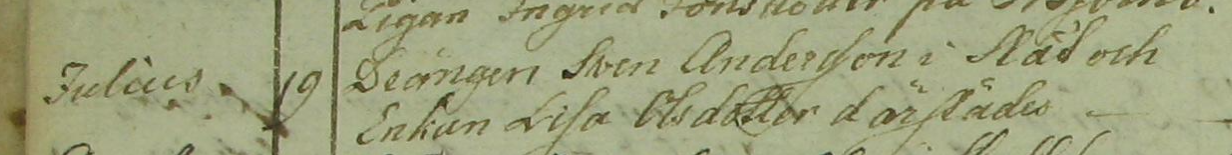 Pigan Ingrid Jonsdotter på
Julius. 19 Drängen Sven Andersson i Släd och
Enkan Lisa Olsdotter därstädes —